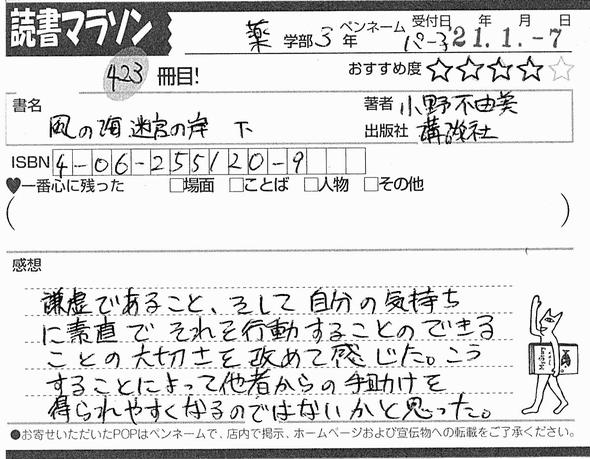 読書マラソン
薬 学部 3 年 ペンネーム パー子 受付日 年 月 日 21.1.-7
423 冊目!
おすすめ度 ☆☆☆☆☆
書名 風の海 迷宮の岸 下
著者 小野不由美
出版社 講談社
ISBN 4-06-255120-9
♥一番心に残った □場面 □ことば □人物 □その他
( )
感想
謙虚であること、そして自分の気持ち
に素直でそれを行動することのできる
ことの大切さを改めて感じた。こう
することによって他者からの手助けを
得られやすくなるのではないかと思った。
●お寄せいただいたPOPはペンネームで、店内で掲示、ホームページおよび宣伝物への転載をご了承ください。